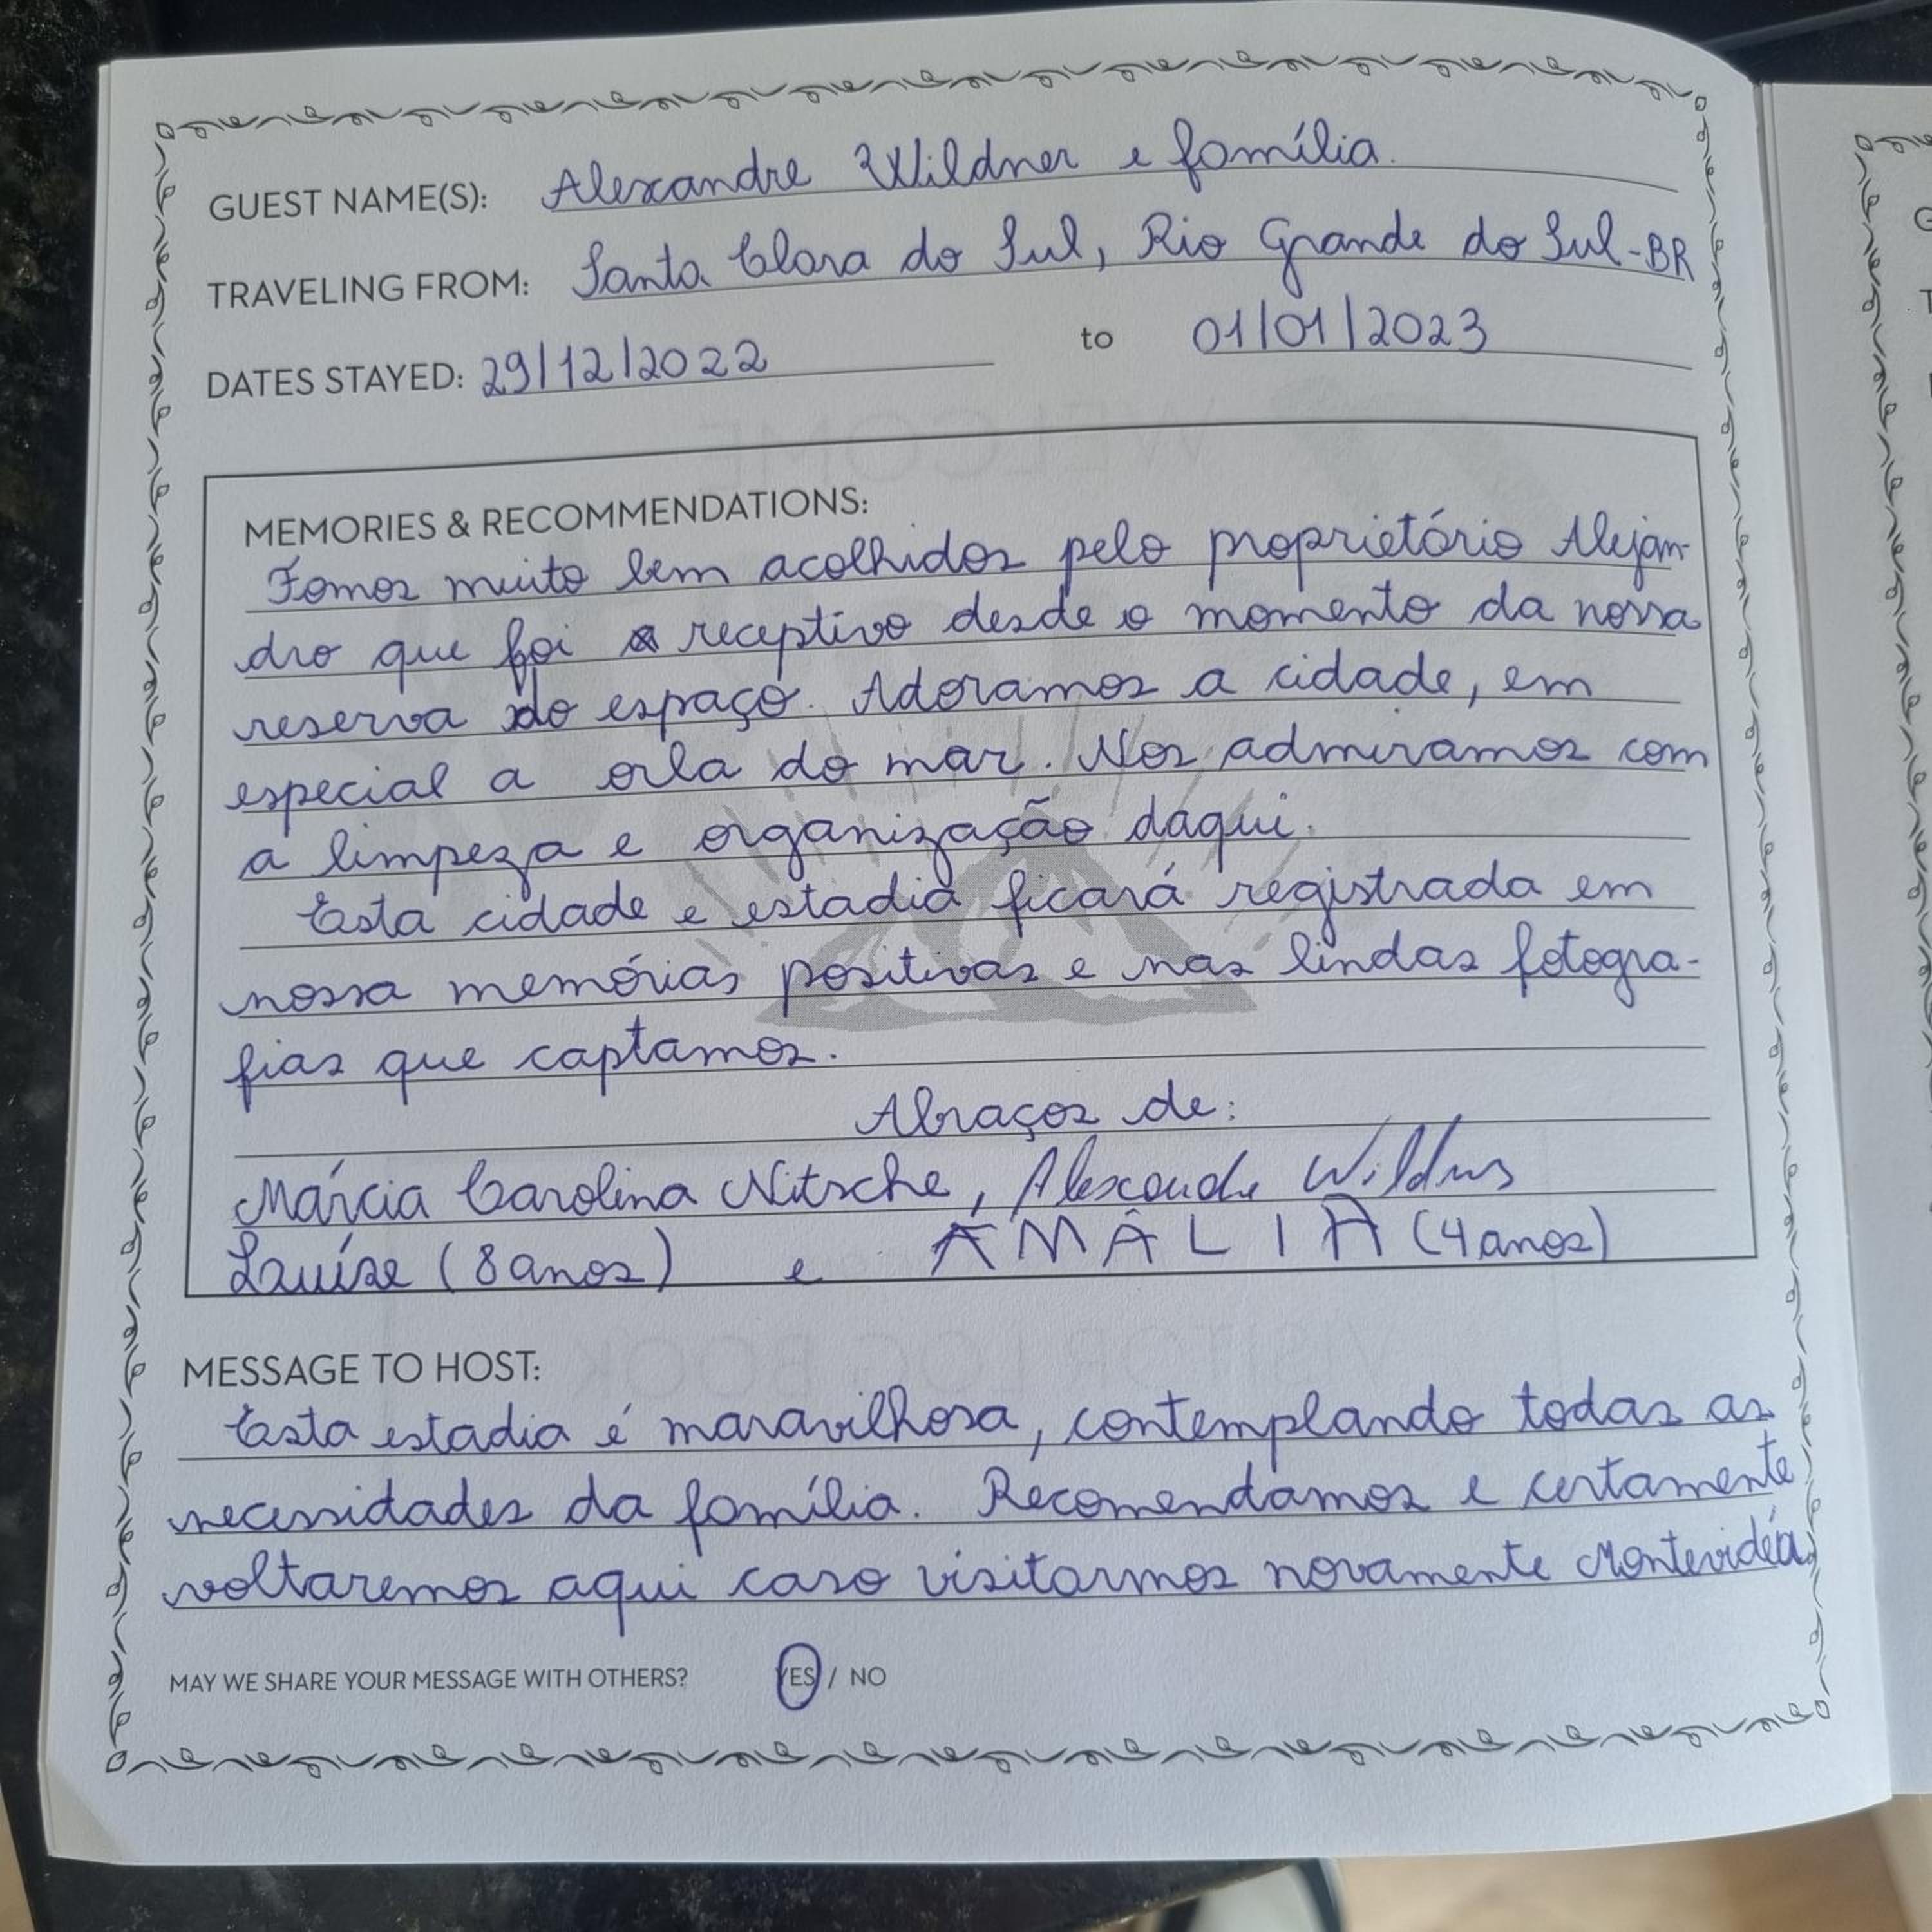 GUEST NAME(S): Alexandre Wildner e família.
TRAVELING FROM: Santa Clara do Sul, Rio Grande do Sul-BR
DATES STAYED: 29/12/2022 to 01/01/2023
MEMORIES & RECOMMENDATIONS:
Fomos muito bem acolhidos pelo proprietário Alejan-
dro que foi receptivo desde o momento da nossa
reserva do espaço. Adoramos a cidade, em
especial a orla do mar. Nos admiramos com
a limpeza e organização daqui.
Esta cidade e estadia ficará registrada em
nossa memórias positivas e nas lindas fotogra-
fias que captamos.
Abraços de:
Márcia Carolina Nitsche, Alexandre Wildner
Lauíse (8 anos) e AMÁLIA (4 anos)
MESSAGE TO HOST:
Esta estadia é maravilhosa, contemplando todas as
necessidades da família. Recomendamos e certamente
voltaremos aqui caso visitarmos novamente Montevidéu.
MAY WE SHARE YOUR MESSAGE WITH OTHERS? YES / NO